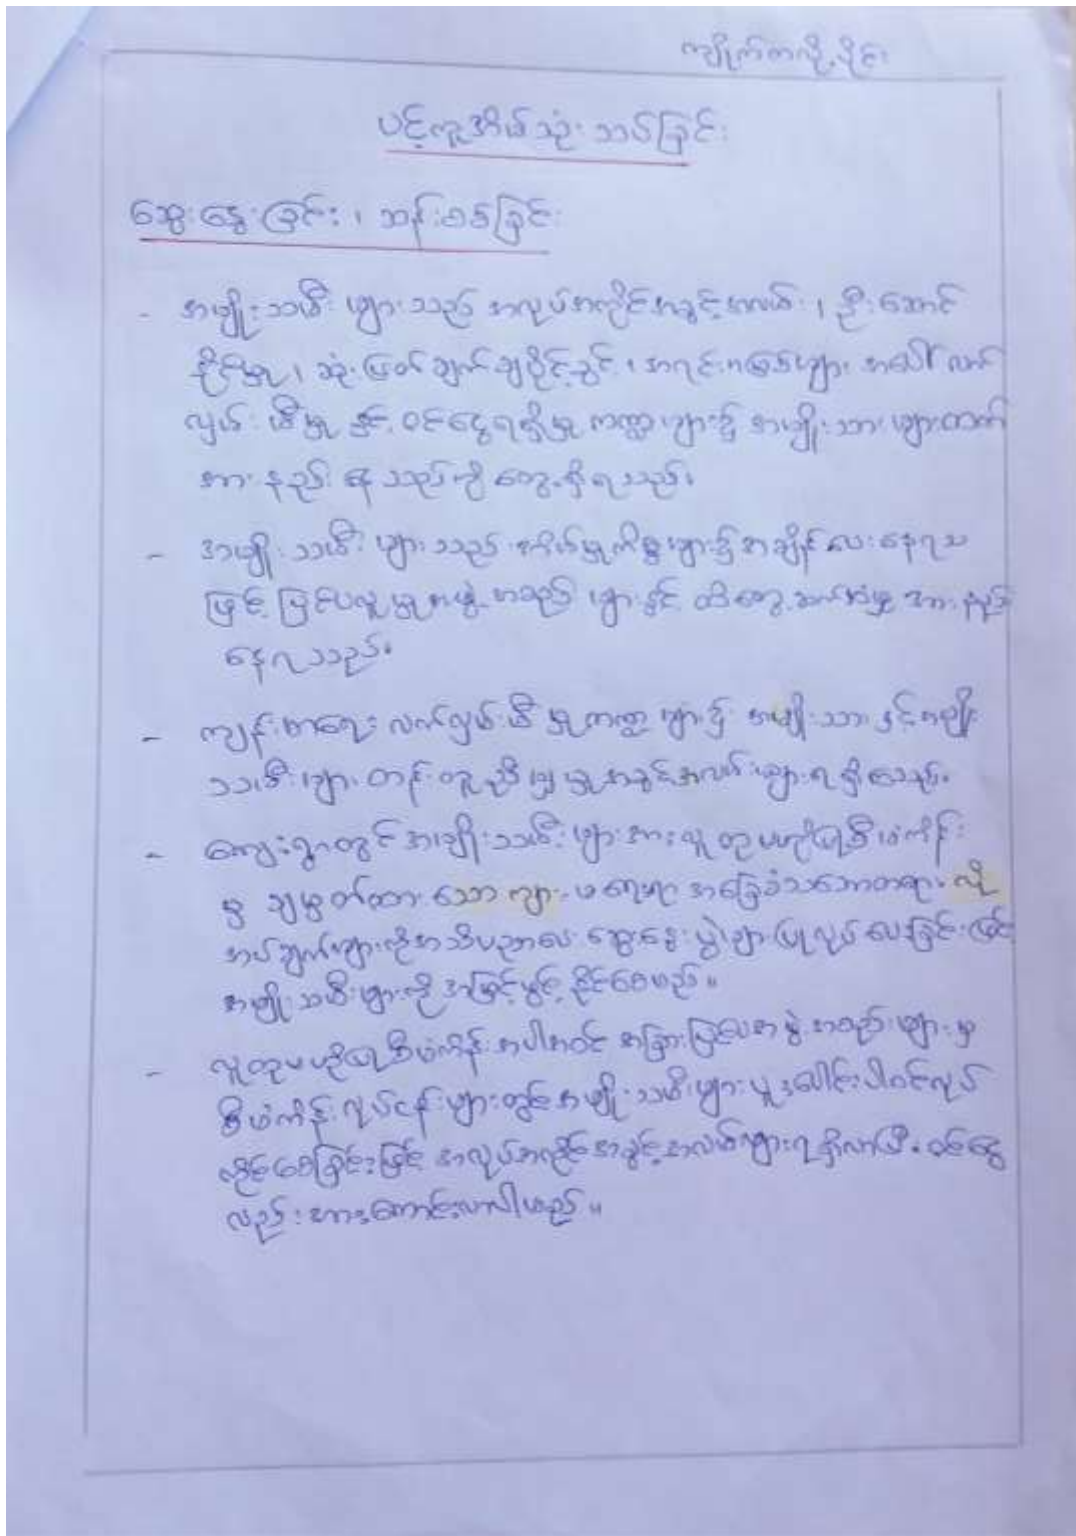 ကျိုက်တလို့ပိုင်း
ပင့်ကူအိမ်သုံးသပ်ခြင်း
ဆွေးနွေးခြင်း၊ ဆန်းစစ်ခြင်း
- အမျိုးသမီးများသည် အလုပ်အကိုင်အခွင့်အလမ်း၊ ဦးဆောင်
နိုင်မှု၊ ဆုံးဖြတ်ချက်ချပိုင်ခွင့်၊ အရင်းအမြစ်များ အပေါ် လက်
လှမ်းမီမှု နှင့် ဝင်ငွေရရှိမှု ကဏ္ဍများ၌ အမျိုးသားများထက်
အားနည်းနေသည်ကို တွေ့ရှိရသည်။
- အမျိုးသမီးများသည် အိမ်မှုကိစ္စများ၌ အချိန်ပေးနေရသ
ဖြင့် ပြင်ပလူမှုအဖွဲ့အစည်းများနှင့် ထိတွေ့ဆက်ဆံမှု အားနည်း
နေရသည်။
- ကျန်းမာရေး လက်လှမ်းမီမှုကဏ္ဍများ၌ အမျိုးသားနှင့်အမျိုး
သမီးများ တန်းတူညီမျှမှုအခွင့်အလမ်းများရရှိစေသည်။
- ကျေးရွာတွင် အမျိုးသမီးများအား လူထုဗဟိုပြုစီမံကိန်း
မှ ချမှတ်ထားသော ကျား-မရေးရာ အခြေခံသဘောတရား လို
အပ်ချက်များကိုအသိပညာပေး ဆွေးနွေးပွဲများပြုလုပ်ပေးခြင်းဖြင့်
အမျိုးသမီးများကို အမြင်ဖွင့်နိုင်စေမည်။
- လူထုဗဟိုပြုစီမံကိန်းအပါအဝင် အခြားပြင်ပအဖွဲ့အစည်းများမှ
စီမံကိန်းလုပ်ငန်းများတွင် အမျိုးသမီးများပူးပေါင်းပါဝင်လုပ်
ကိုင်စေခြင်းဖြင့် အလုပ်အကိုင်အခွင့်အလမ်းများရရှိလာပြီး ဝင်ငွေ
လည်းအားကောင်းလာပါမည်။